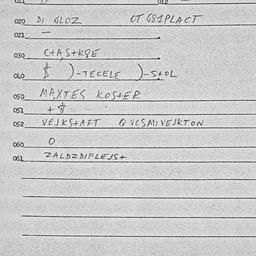 011 012
020 DI GLOZ OT G81PLACT
021 —
030 C+AS+KQE
040 $ )-TECELE )-S+OL
050 MAXTES KOS+ER
051 + $
052 VEJKS+AFT Q VCSMIVEJKTON
060 O
061 ZALDZDIFLEJS+